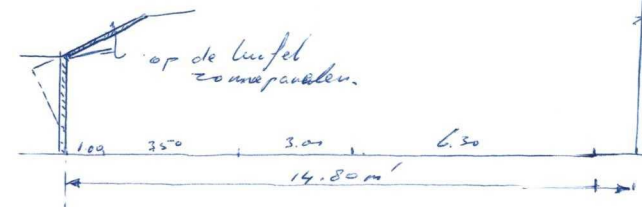 op de luifel
zonnepanelen.
1.00 350 3.00 6.30
14.80 m'